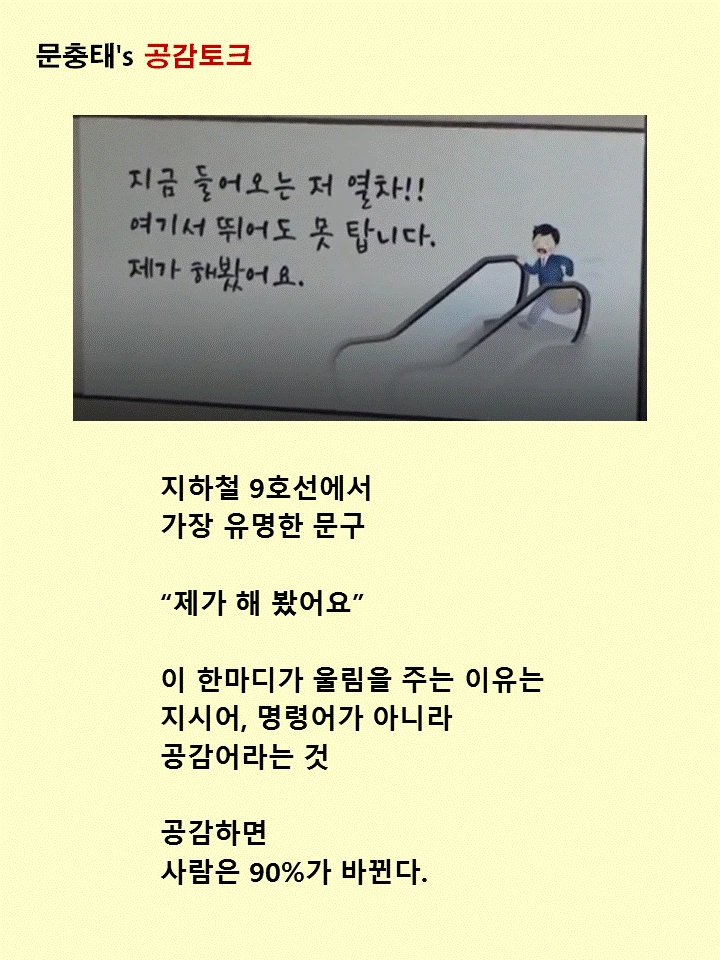 문충태's 공감토크
지금 들어오는 저 열차!!
여기서 뛰어도 못 탑니다.
제가 해봤어요.
지하철 9호선에서
가장 유명한 문구
“제가 해 봤어요”
이 한마디가 울림을 주는 이유는
지시어, 명령어가 아니라
공감어라는 것
공감하면
사람은 90%가 바뀐다.